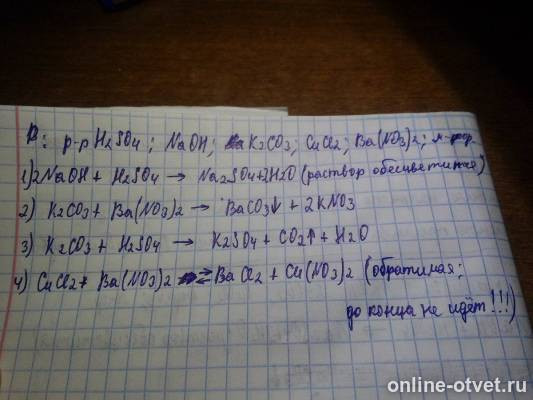 Р: р-р H2SO4; NaOH; K2CO3; CuCl2; Ba(NO3)2;
1) 2NaOH + H2SO4 → Na2SO4 + 2H2O (раствор обесцветился)
2) K2CO3 + Ba(NO3)2 → BaCO3↓ + 2KNO3
3) K2CO3 + H2SO4 → K2SO4 + CO2↑ + H2O
4) CuCl2 + Ba(NO3)2 ⇄ BaCl2 + Cu(NO3)2 (обратимая;
до конца не идёт!!!)
online-otvet.ru